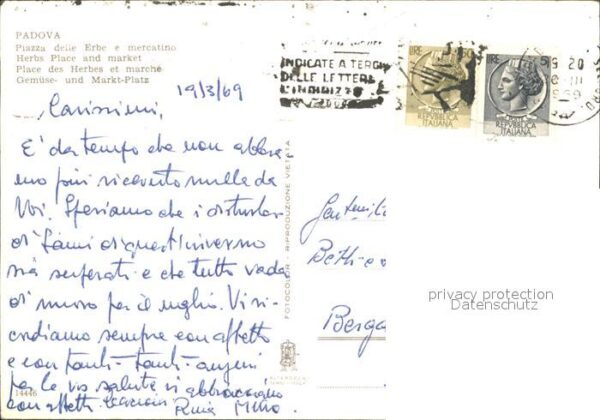 PADOVA
Piazza delle Erbe e mercatino
Herbs Place and market
Place des Herbes et marché
Gemüse- und Markt-Platz
19/3/69
Carissimi,
E' da tempo che non abbia
mo più ricevuto nulla da
Voi. Speriamo che i disturbi
di quest'inverno
sia superati e che tutto vada
di nuovo per il meglio. Vi ri-
cordiamo sempre con affetto
e con tanti-tanti-auguri
per la vs salute vi abbracciamo
con affetto
Mino
14446
INDICATE A TERGO
DELLE LETTERE
L'INDIRIZZO
LIRE 50
POSTE
REPVBBLICA
ITALIANA
LIRE 5
REPVBBLICA
ITALIANA
20
1969
FOTOCOLOR - RIPRODUZIONE VIETATA
Berga
privacy protection
Datenschutz